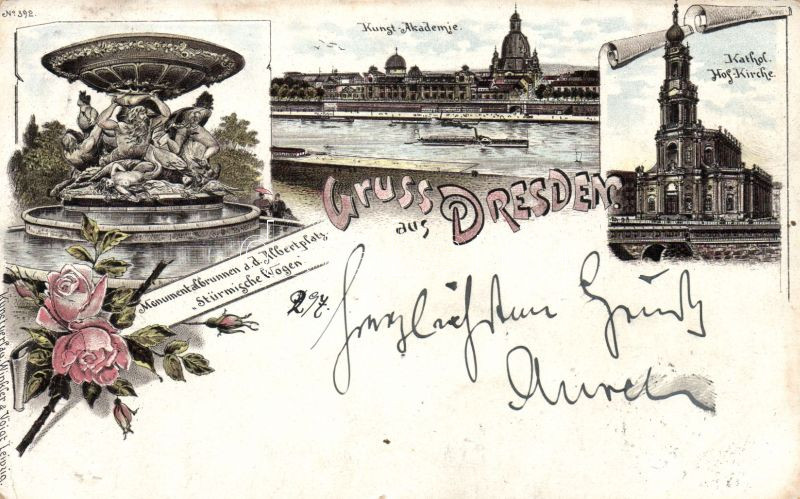 No 392.
Kunst-Akademie.
Kathol.
Hof-Kirche.
Gruss
aus
DRESDEN.
Monumentalbrunnen a.d. Albertplatz.
"Stürmische Wogen"
Herzlichsten Gruß
Kunstverlag Winkler & Voigt, Leipzig.